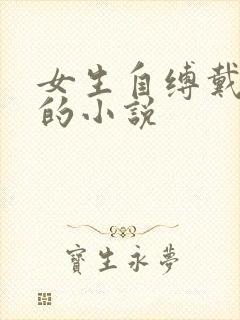 女生自缚戴
的小説
寳生永夢